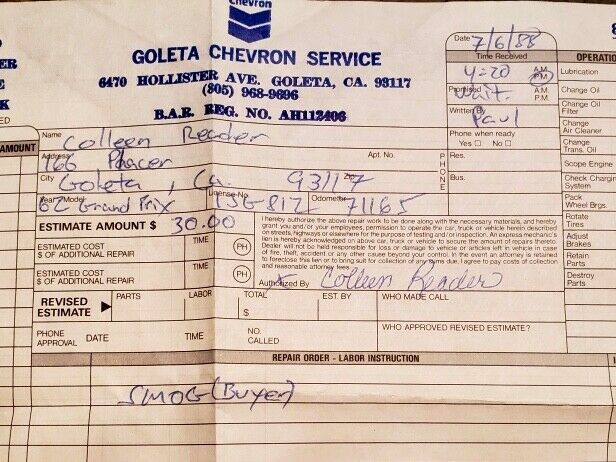 Chevron
GOLETA CHEVRON SERVICE
6470 HOLLISTER AVE. GOLETA, CA. 93117
(805) 968-9696
B.A.R. REG. NO. AH112406
Date 7/6/88
Time Received
4:20 A.M. P.M.
Promised Wait. A.M. P.M.
Written By Paul
Phone when ready
Yes ☐ No ☐
OPERATIO
Lubrication
Change Oil
Change Oil Filter
Change Air Cleaner
Change Trans. Oil
Scope Engine
Check Chargin System
Pack Wheel Brgs.
Rotate Tires
Adjust Brakes
Retain Parts
Destroy Parts
AMOUNT
Name Colleen Reader
Address 166 Phacer Apt. No.
City Goleta, Ca 93117 Zip
PHONE Res.
Bus.
Year/Model Grand Prix License No. Odometer 71165
ESTIMATE AMOUNT $ 30.00
ESTIMATED COST $ OF ADDITIONAL REPAIR TIME PH
ESTIMATED COST $ OF ADDITIONAL REPAIR TIME PH
I hereby authorize the above repair work to be done along with the necessary materials, and hereby
grant you and/or your employees, permission to operate the car, truck or vehicle herein described
on streets, highways or elsewhere for the purpose of testing and/or inspection. An express mechanic's
lien is hereby acknowledged on above car, truck or vehicle to secure the amount of repairs thereto.
Dealer will not be held responsible for loss or damage to vehicle or articles left in vehicle in case
of fire, theft, accident or any other cause beyond your control. In the event an attorney is retained
to foreclose this lien or to bring suit for collection of any sums due, I agree to pay costs of collection
and reasonable attorney fees.
Authorized By x Colleen Reader
REVISED ESTIMATE PARTS LABOR TOTAL $ EST. BY WHO MADE CALL
PHONE APPROVAL DATE TIME NO. CALLED WHO APPROVED REVISED ESTIMATE?
REPAIR ORDER - LABOR INSTRUCTION
SMOG (Buyer)